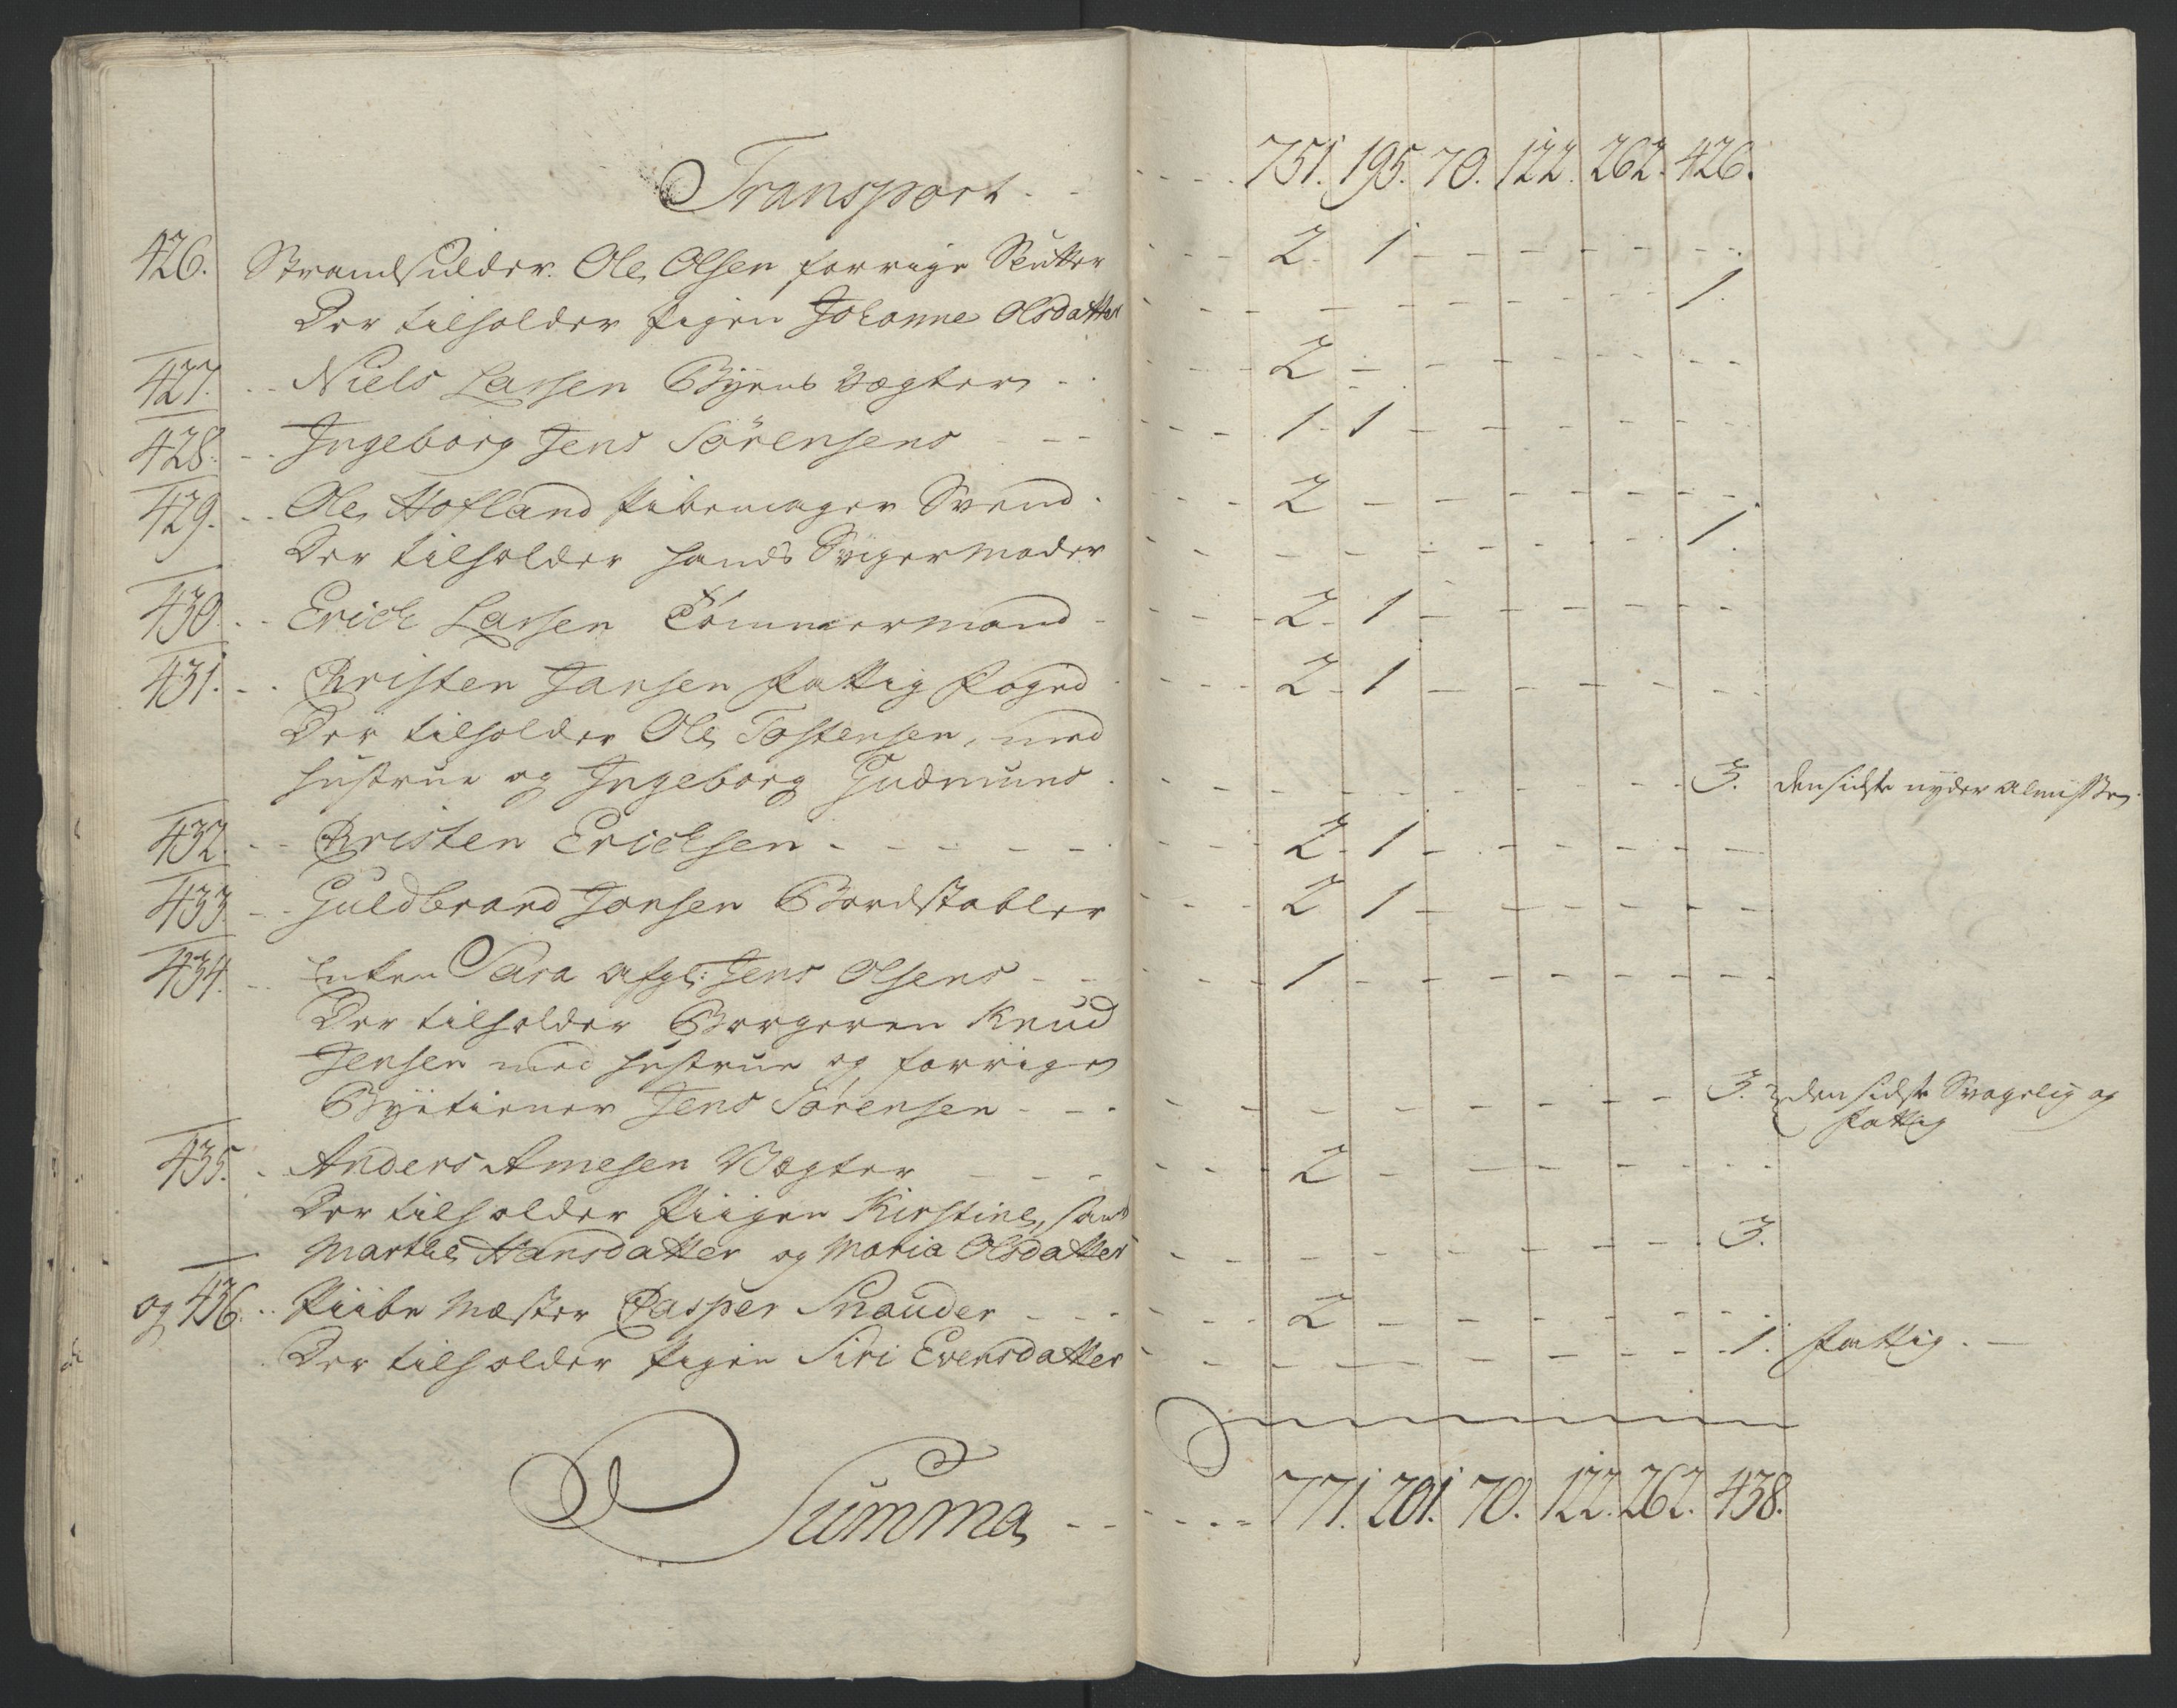 Transport - - - - - 751. 195. 70. 122. 262. 426.
426. Strandsidder Ole Olsen forrige Slutter - - - 2 - 1 - - - - - - -
Der tilholder Pigen Johanne Olsdatter - - - - - - - - 1.
427. - - Niels Larsen Byens Vægter - - - - 2 - - - - - - -
428. - - Ingeborg Jens Sörensens - - - - - - 1 - 1 - - - - - -
429. - - Ole Hofland Pibemager Svend - - - 2 - - - - - - -
Der tilholder hands Svigermoder - - - - - - - - 1.
430. - - Erich Larsen Tömmermand - - - - 2 - 1 - - - - - -
431. - - Christen Jansen Fattig Foged - - - 2 - 1 - - - - - -
Der tilholder Ole Tostensen, med
Hustrue og Ingeborg Gudmunds - - - - - - - - 3. den sidste nyder Almisse
432. - - Christen Erichsen - - - - - - - - 2 - 1 - - - - - -
433. - - Guldbrand Jonsen Bordstabler - - - 2 1 - - - - - -
434. - - Enken Sara afgl: Jens Olsens - - - - - 1 - - - - - - -
Der tilholder Borgeren Knud
Jensen med Hustrue og forrige
Byetiener Jens Sörensen - - - - - - - - - - 3. den sidste Svagelig og
fattig
435. - Anders Amesen Vægter - - - - - - 2 - - - - - - -
Der tilholder Piigen Kirstine, samt
Marthe Hansdatter og Maria Olsdatter - - - - - - - - 3.
og 436. - - Piibe Mæster Casper Snauder - - - - - - 2 - - - - - - -
Der tilholder Pigen Siri Evensdatter - - - - - - - - 1. fattig. -
Summa - - - - - - 771. 201. 70. 122. 262. 438.